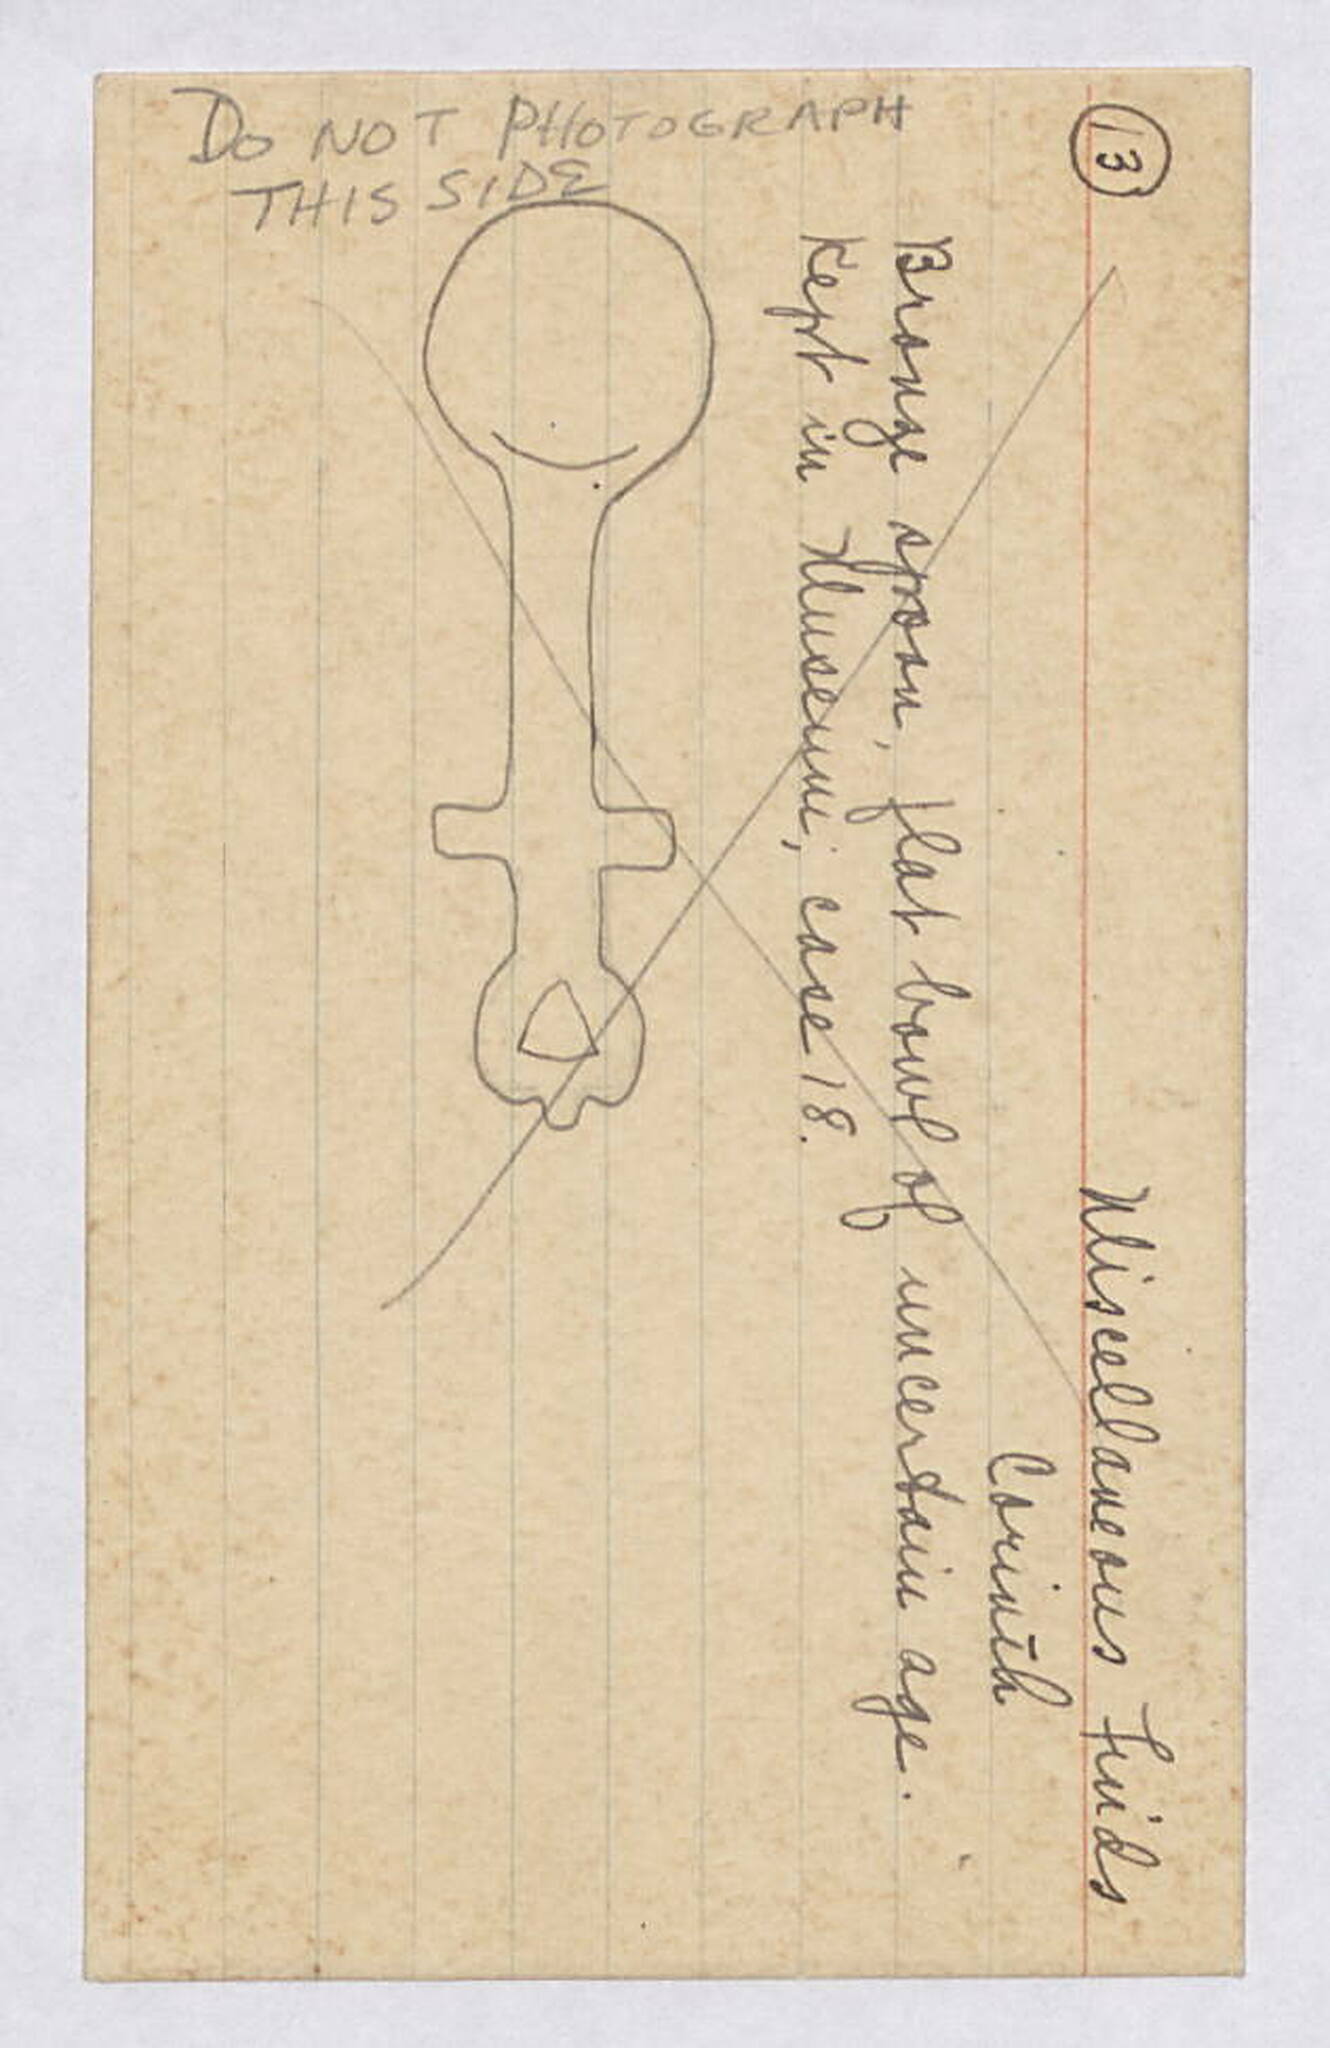 DO NOT PHOTOGRAPH
THIS SIDE
13
Miscellaneous finds
Corinth
Bronze spoon, flat bowl of uncertain age.
Kept in Museum, case 18.